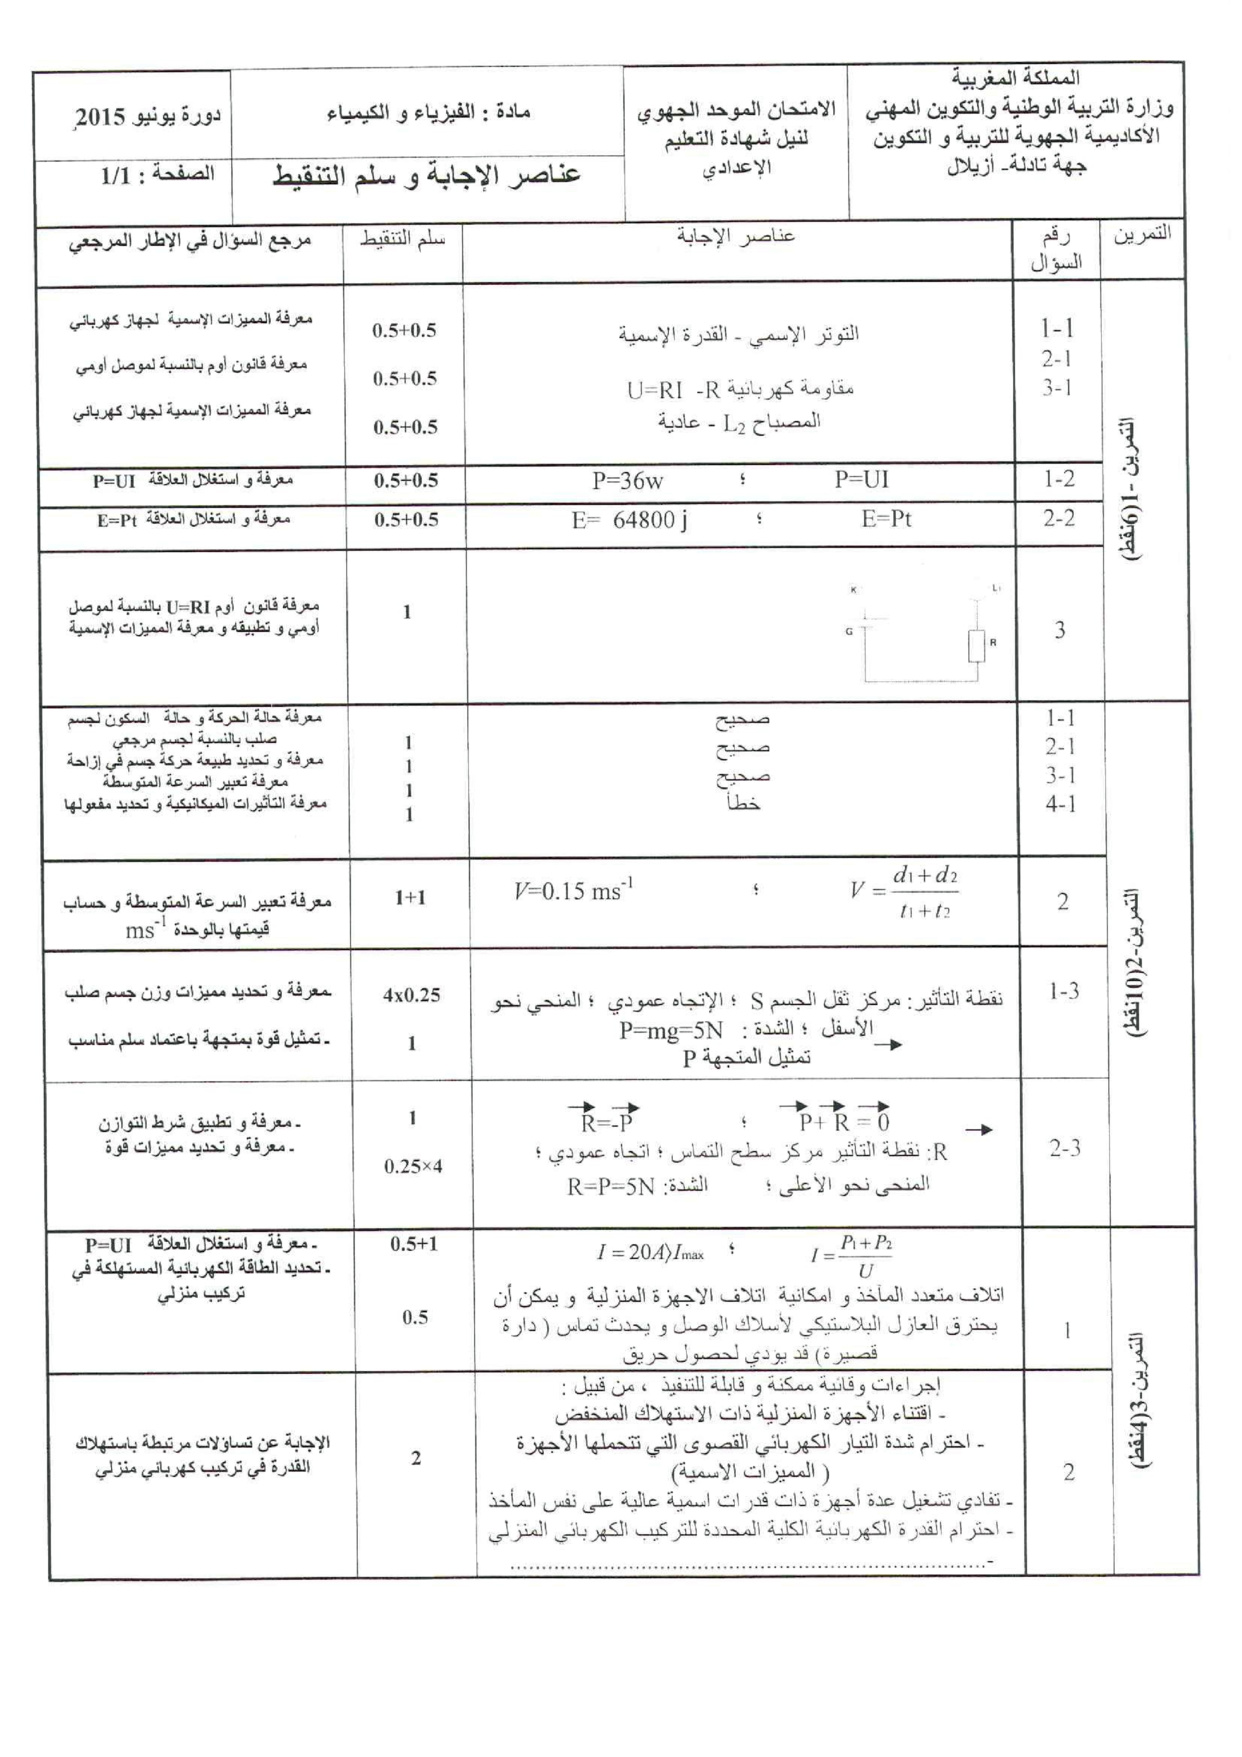 المملكة المغربية
وزارة التربية الوطنية والتكوين المهني
الأكاديمية الجهوية للتربية و التكوين
جهة تادلة- أزيلال
الامتحان الموحد الجهوي
لنيل شهادة التعليم
الإعدادي
مادة : الفيزياء و الكيمياء
عناصر الإجابة و سلم التنقيط
دورة يونيو 2015
الصفحة : 1/1
التمرين
رقم السؤال
عناصر الإجابة
سلم التنقيط
مرجع السؤال في الإطار المرجعي
التمرين -1(6نقط)
1-1
2-1
3-1
التوتر الإسمي - القدرة الإسمية
مقاومة كهربائية U=RI -R
المصباح L2 - عادية
0.5+0.5
0.5+0.5
0.5+0.5
معرفة المميزات الإسمية لجهاز كهربائي
معرفة قانون أوم بالنسبة لموصل أومي
معرفة المميزات الإسمية لجهاز كهربائي
1-2
P=UI ؛ P=36w
0.5+0.5
معرفة و استغلال العلاقة P=UI
2-2
E=Pt ؛ E= 64800 j
0.5+0.5
معرفة و استغلال العلاقة E=Pt
3
K
L1
G
R
1
معرفة قانون أوم U=RI بالنسبة لموصل
أومي و تطبيقه و معرفة المميزات الإسمية
التمرين-2(10نقط)
1-1
2-1
3-1
4-1
صحيح
صحيح
صحيح
خطأ
1
1
1
1
معرفة حالة الحركة و حالة السكون لجسم
صلب بالنسبة لجسم مرجعي
معرفة و تحديد طبيعة حركة جسم في إزاحة
معرفة تعبير السرعة المتوسطة
معرفة التأثيرات الميكانيكية و تحديد مفعولها
2
V = (d1+d2)/(t1+t2) ؛ V=0.15 ms-1
1+1
معرفة تعبير السرعة المتوسطة و حساب
قيمتها بالوحدة ms-1
1-3
نقطة التأثير: مركز ثقل الجسم S ؛ الإتجاه عمودي ؛ المنحي نحو
الأسفل ؛ الشدة : P=mg=5N
تمثيل المتجهة P
4x0.25
1
-معرفة و تحديد مميزات وزن جسم صلب
- تمثيل قوة بمتجهة باعتماد سلم مناسب
2-3
P+ R = 0 ؛ R=-P
R: نقطة التأثير مركز سطح التماس ؛ اتجاه عمودي ؛
المنحى نحو الأعلى ؛ الشدة: R=P=5N
1
0.25×4
- معرفة و تطبيق شرط التوازن
- معرفة و تحديد مميزات قوة
التمرين-3(4نقط)
1
I = (P1+P2)/U ؛ I = 20A⟩Imax
اتلاف متعدد المأخذ و امكانية اتلاف الاجهزة المنزلية و يمكن أن
يحترق العازل البلاستيكي لأسلاك الوصل و يحدث تماس ( دارة
قصيرة) قد يودي لحصول حريق
0.5+1
0.5
- معرفة و استغلال العلاقة P=UI
- تحديد الطاقة الكهربائية المستهلكة في
تركيب منزلي
2
إجراءات وقائية ممكنة و قابلة للتنفيذ ، من قبيل :
- اقتناء الأجهزة المنزلية ذات الاستهلاك المنخفض
- احترام شدة التيار الكهربائي القصوى التي تتحملها الأجهزة
( المميزات الاسمية)
- تفادي تشغيل عدة أجهزة ذات قدرات اسمية عالية على نفس المأخذ
- احترام القدرة الكهربائية الكلية المحددة للتركيب الكهربائي المنزلي
-......................................................................
2
الإجابة عن تساؤلات مرتبطة باستهلاك
القدرة في تركيب كهربائي منزلي